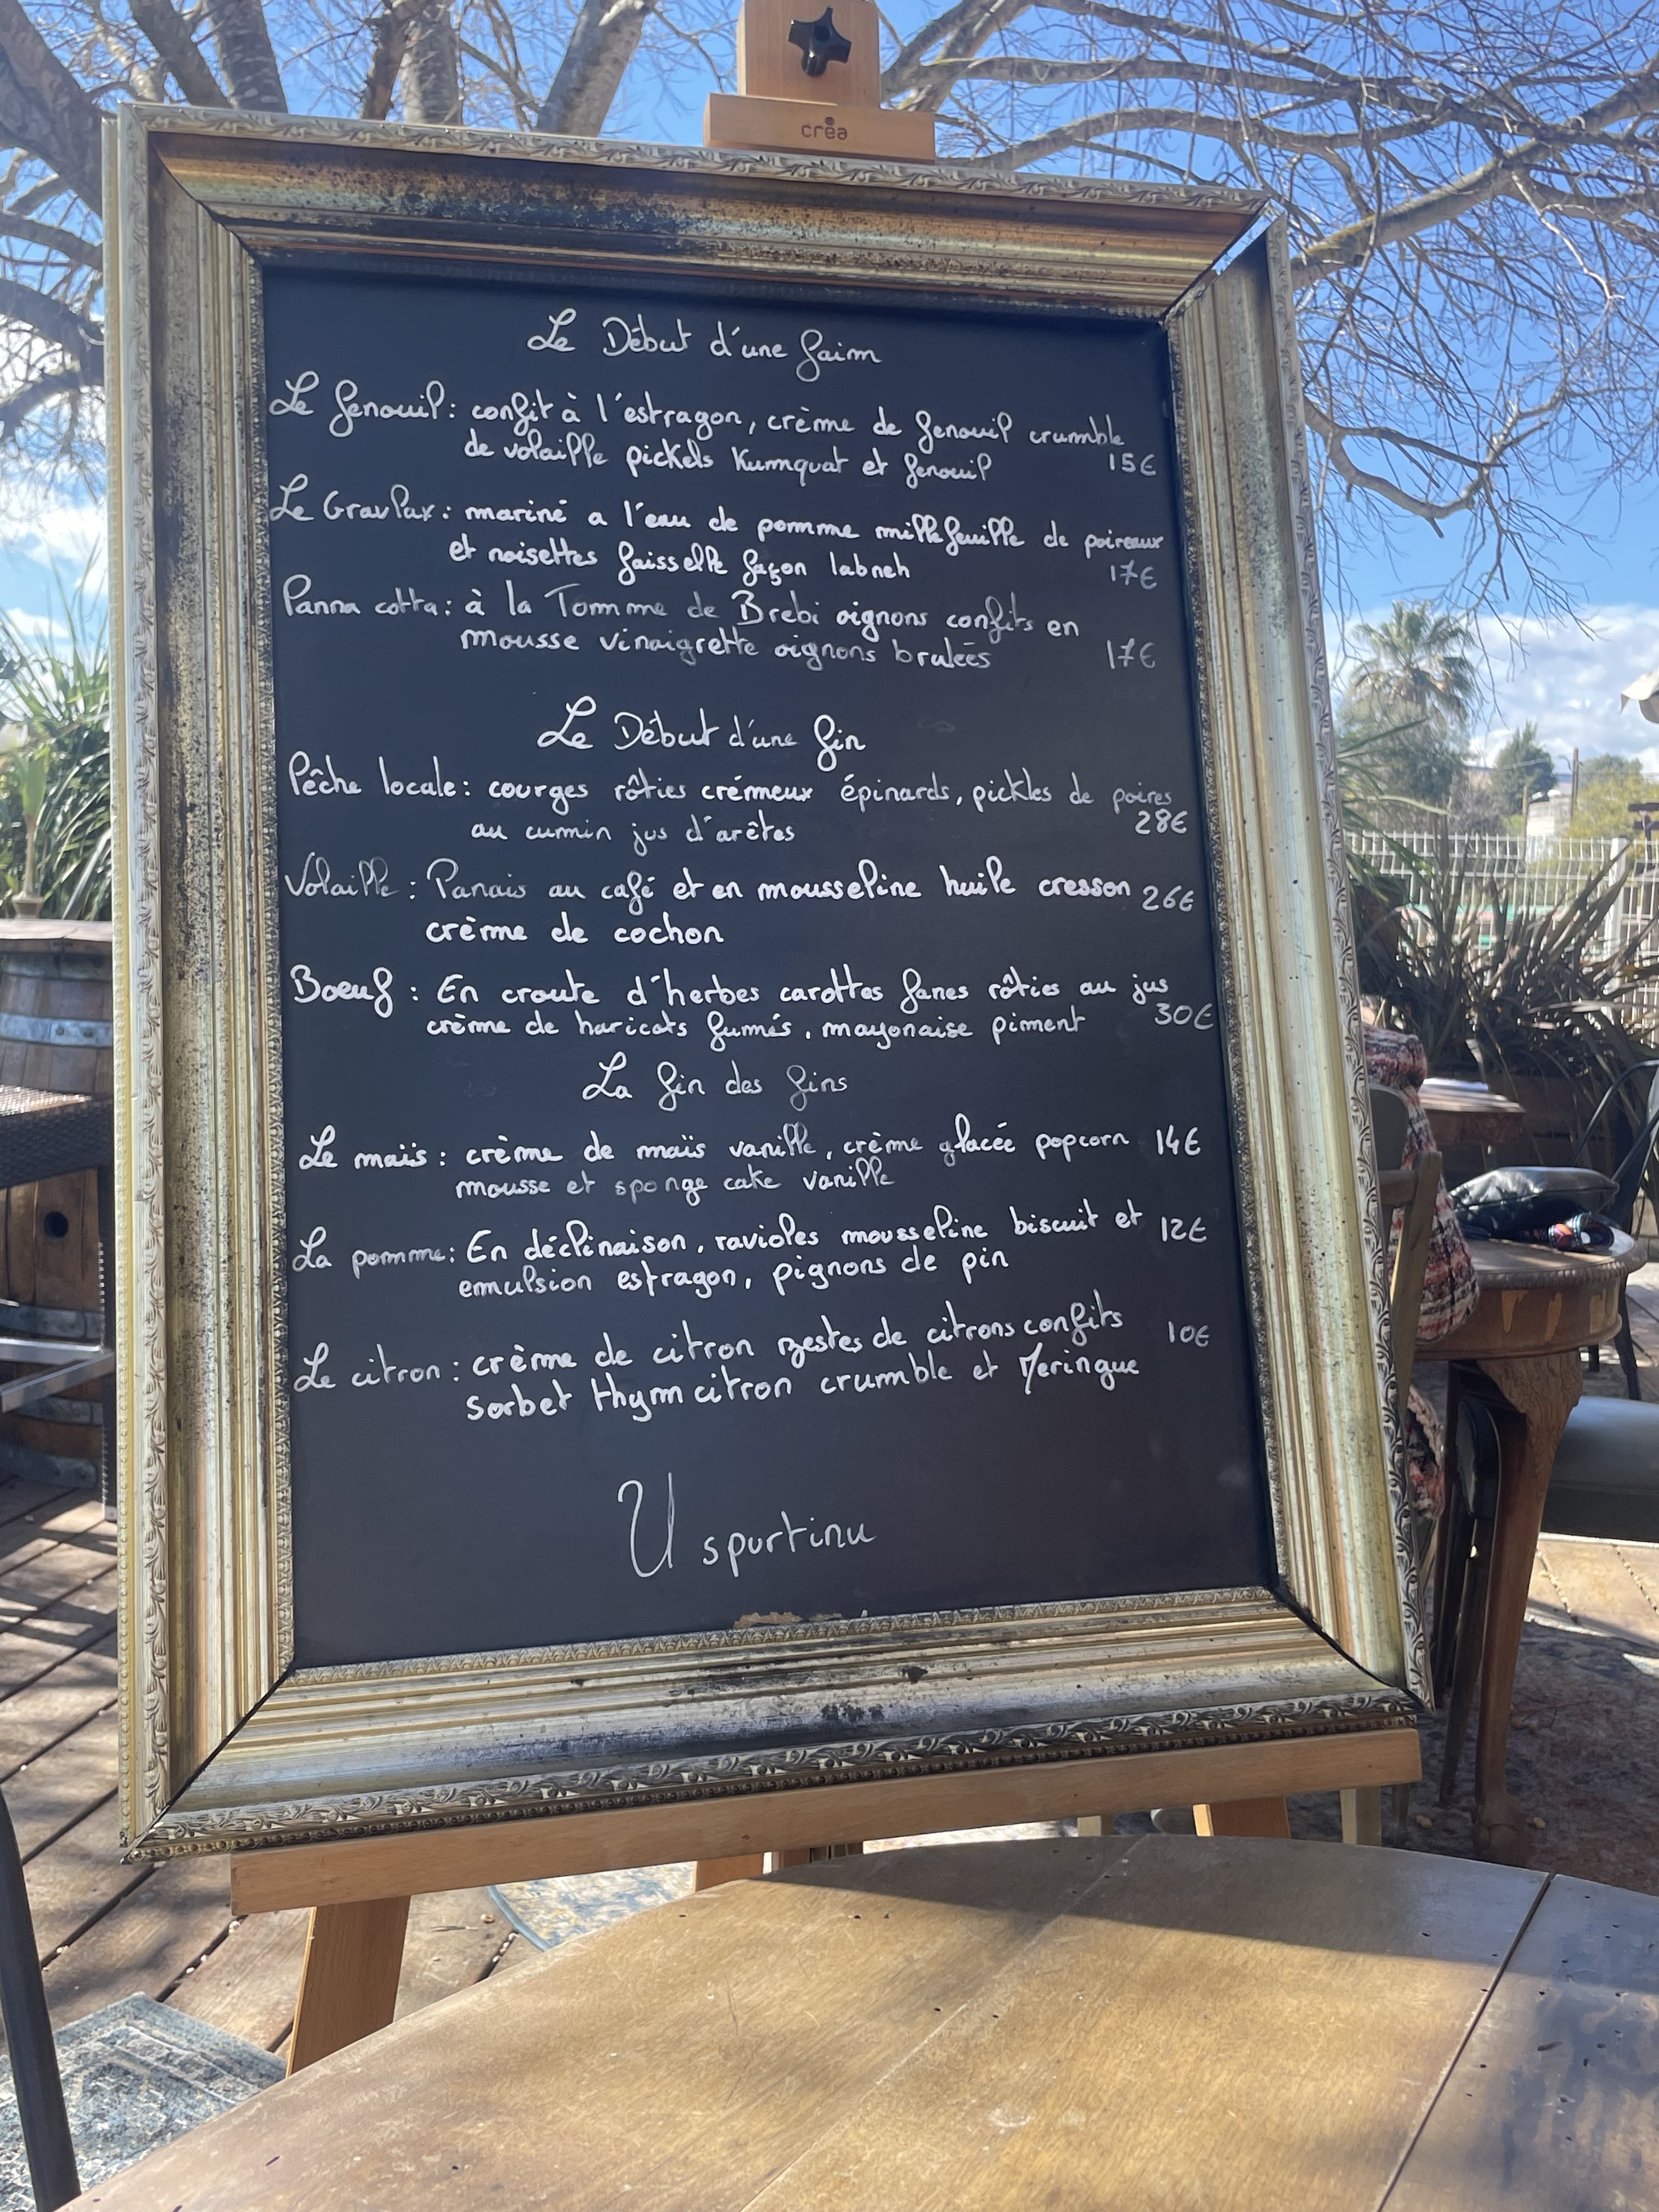 crēa
Le Début d'une faim
Le fenouil : confit à l'estragon, crème de fenouil crumble
de volaille pickels Kumquat et fenouil 15€
Le Gravlax : mariné a l'eau de pomme millefeuille de poireaux
et noisettes faisselle façon labneh 17€
Panna cotta : à la Tomme de Brebi oignons confits en
mousse vinaigrette oignons brulées 17€
Le Début d'une fin
Pêche locale : courges rôties crémeux épinards, pickles de poires
au cumin jus d'arêtes 28€
Volaille : Panais au café et en mousseline huile cresson 26€
crème de cochon
Boeuf : En croute d'herbes carottes fanes rôties au jus
crème de haricots fumés, mayonaise piment 30€
La fin des fins
Le maïs : crème de maïs vanille, crème glacée popcorn 14€
mousse et sponge cake vanille
La pomme : En déclinaison, ravioles mousseline biscuit et 12€
emulsion estragon, pignons de pin
Le citron : crème de citron zestes de citrons confits 10€
sorbet thym citron crumble et Meringue
U spurtinu